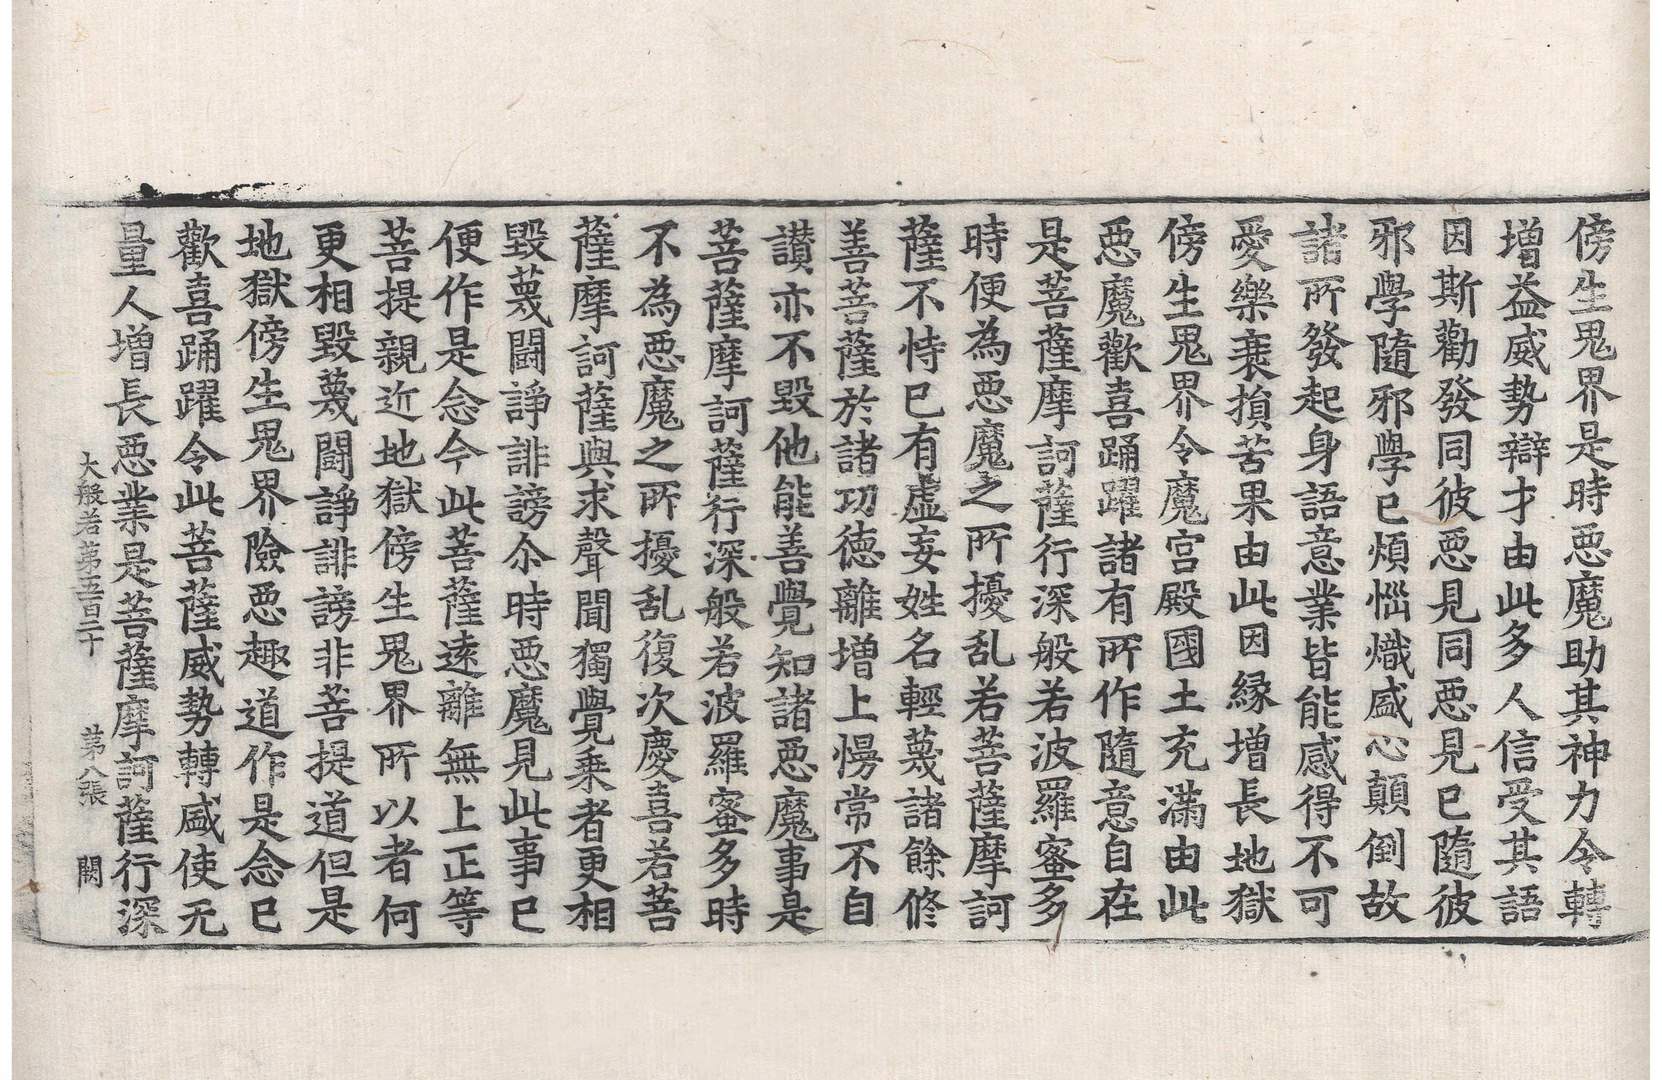 傍生鬼界是時惡魔助其神力令轉
增益威勢辯才由此多人信受其語
因斯勸發同彼惡見同惡見已隨彼
邪學隨邪學已煩惱熾盛心顛倒故
諸所發起身語意業皆能感得不可
愛樂衰損苦果由此因緣增長地獄
傍生鬼界令魔宮殿國土充滿由此
惡魔歡喜踊躍諸有所作隨意自在
是菩薩摩訶薩行深般若波羅蜜多
時便為惡魔之所擾乱若菩薩摩訶
薩不恃已有虛妄姓名輕蔑諸餘修
善菩薩於諸功德離增上慢常不自
讃亦不毀他能善覺知諸惡魔事是
菩薩摩訶薩行深般若波羅蜜多時
不為惡魔之所擾乱復次慶喜若菩
薩摩訶薩與求聲聞獨覺乘者更相
毀蔑鬪諍誹謗尒時惡魔見此事已
便作是念今此菩薩遠離無上正等
菩提親近地獄傍生鬼界所以者何
更相毀蔑鬪諍誹謗非菩提道但是
地獄傍生鬼界險惡趣道作是念已
歡喜踊躍令此菩薩威勢轉盛使无
量人增長惡業是菩薩摩訶薩行深
大般若第五百二十 第八張 闕